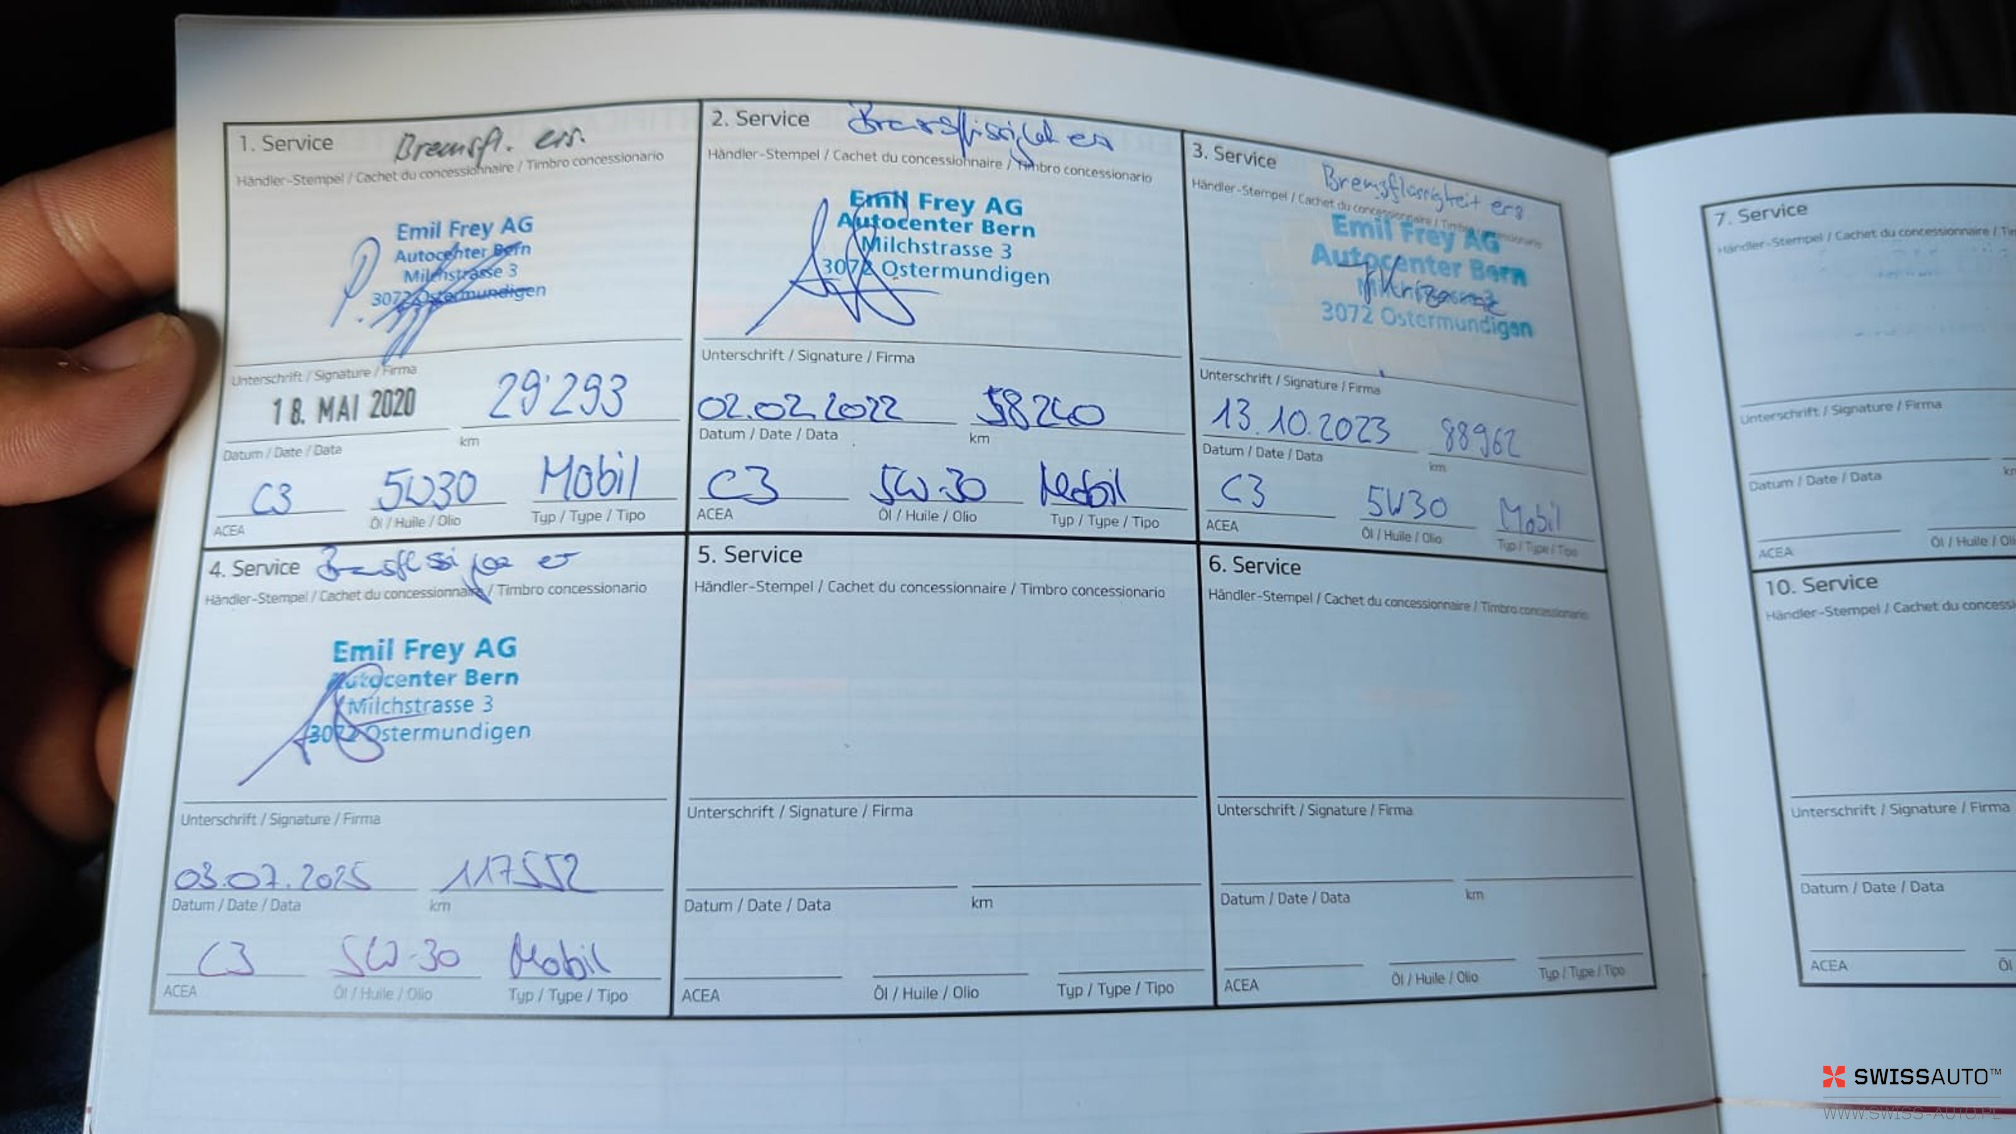 1. Service Bremsfl. ers.
Händler-Stempel / Cachet du concessionnaire / Timbro concessionario
Emil Frey AG
Autocenter Bern
Milchstrasse 3
3072 Ostermundigen
Unterschrift / Signature / Firma
18. MAI 2020 29'293
Datum / Date / Data km
C3 5W30 Mobil
ACEA Öl / Huile / Olio Typ / Type / Tipo
2. Service
Händler-Stempel / Cachet du concessionnaire / Timbro concessionario
Emil Frey AG
Autocenter Bern
Milchstrasse 3
3072 Ostermundigen
Unterschrift / Signature / Firma
02.02.2022 58240
Datum / Date / Data km
C3 5W-30 Mobil
ACEA Öl / Huile / Olio Typ / Type / Tipo
3. Service Bremsflüssigkeit ers
Händler-Stempel / Cachet du concessionnaire / Timbro concessionario
Emil Frey AG
Autocenter Bern
3072 Ostermundigen
Unterschrift / Signature / Firma
13.10.2023 88962
Datum / Date / Data km
C3 5W30 Mobil
ACEA Öl / Huile / Olio Typ / Type / Tipo
4. Service
Händler-Stempel / Cachet du concessionnaire / Timbro concessionario
Emil Frey AG
Autocenter Bern
Milchstrasse 3
3072 Ostermundigen
Unterschrift / Signature / Firma
03.07.2025 117552
Datum / Date / Data km
C3 5W-30 Mobil
ACEA Öl / Huile / Olio Typ / Type / Tipo
5. Service
Händler-Stempel / Cachet du concessionnaire / Timbro concessionario
Unterschrift / Signature / Firma
Datum / Date / Data km
ACEA Öl / Huile / Olio Typ / Type / Tipo
6. Service
Händler-Stempel / Cachet du concessionnaire / Timbro concessionario
Unterschrift / Signature / Firma
Datum / Date / Data km
ACEA Öl / Huile / Olio Typ / Type / Tipo
7. Service
Händler-Stempel / Cachet du concessionnaire /
Unterschrift / Signature / Firma
Datum / Date / Data
ACEA Öl / Huile /
10. Service
Händler-Stempel / Cachet du
Unterschrift / Signature / Firma
Datum / Date / Data
ACEA Öl
SWISSAUTO™
WWW.SWISS-AUTO.PL